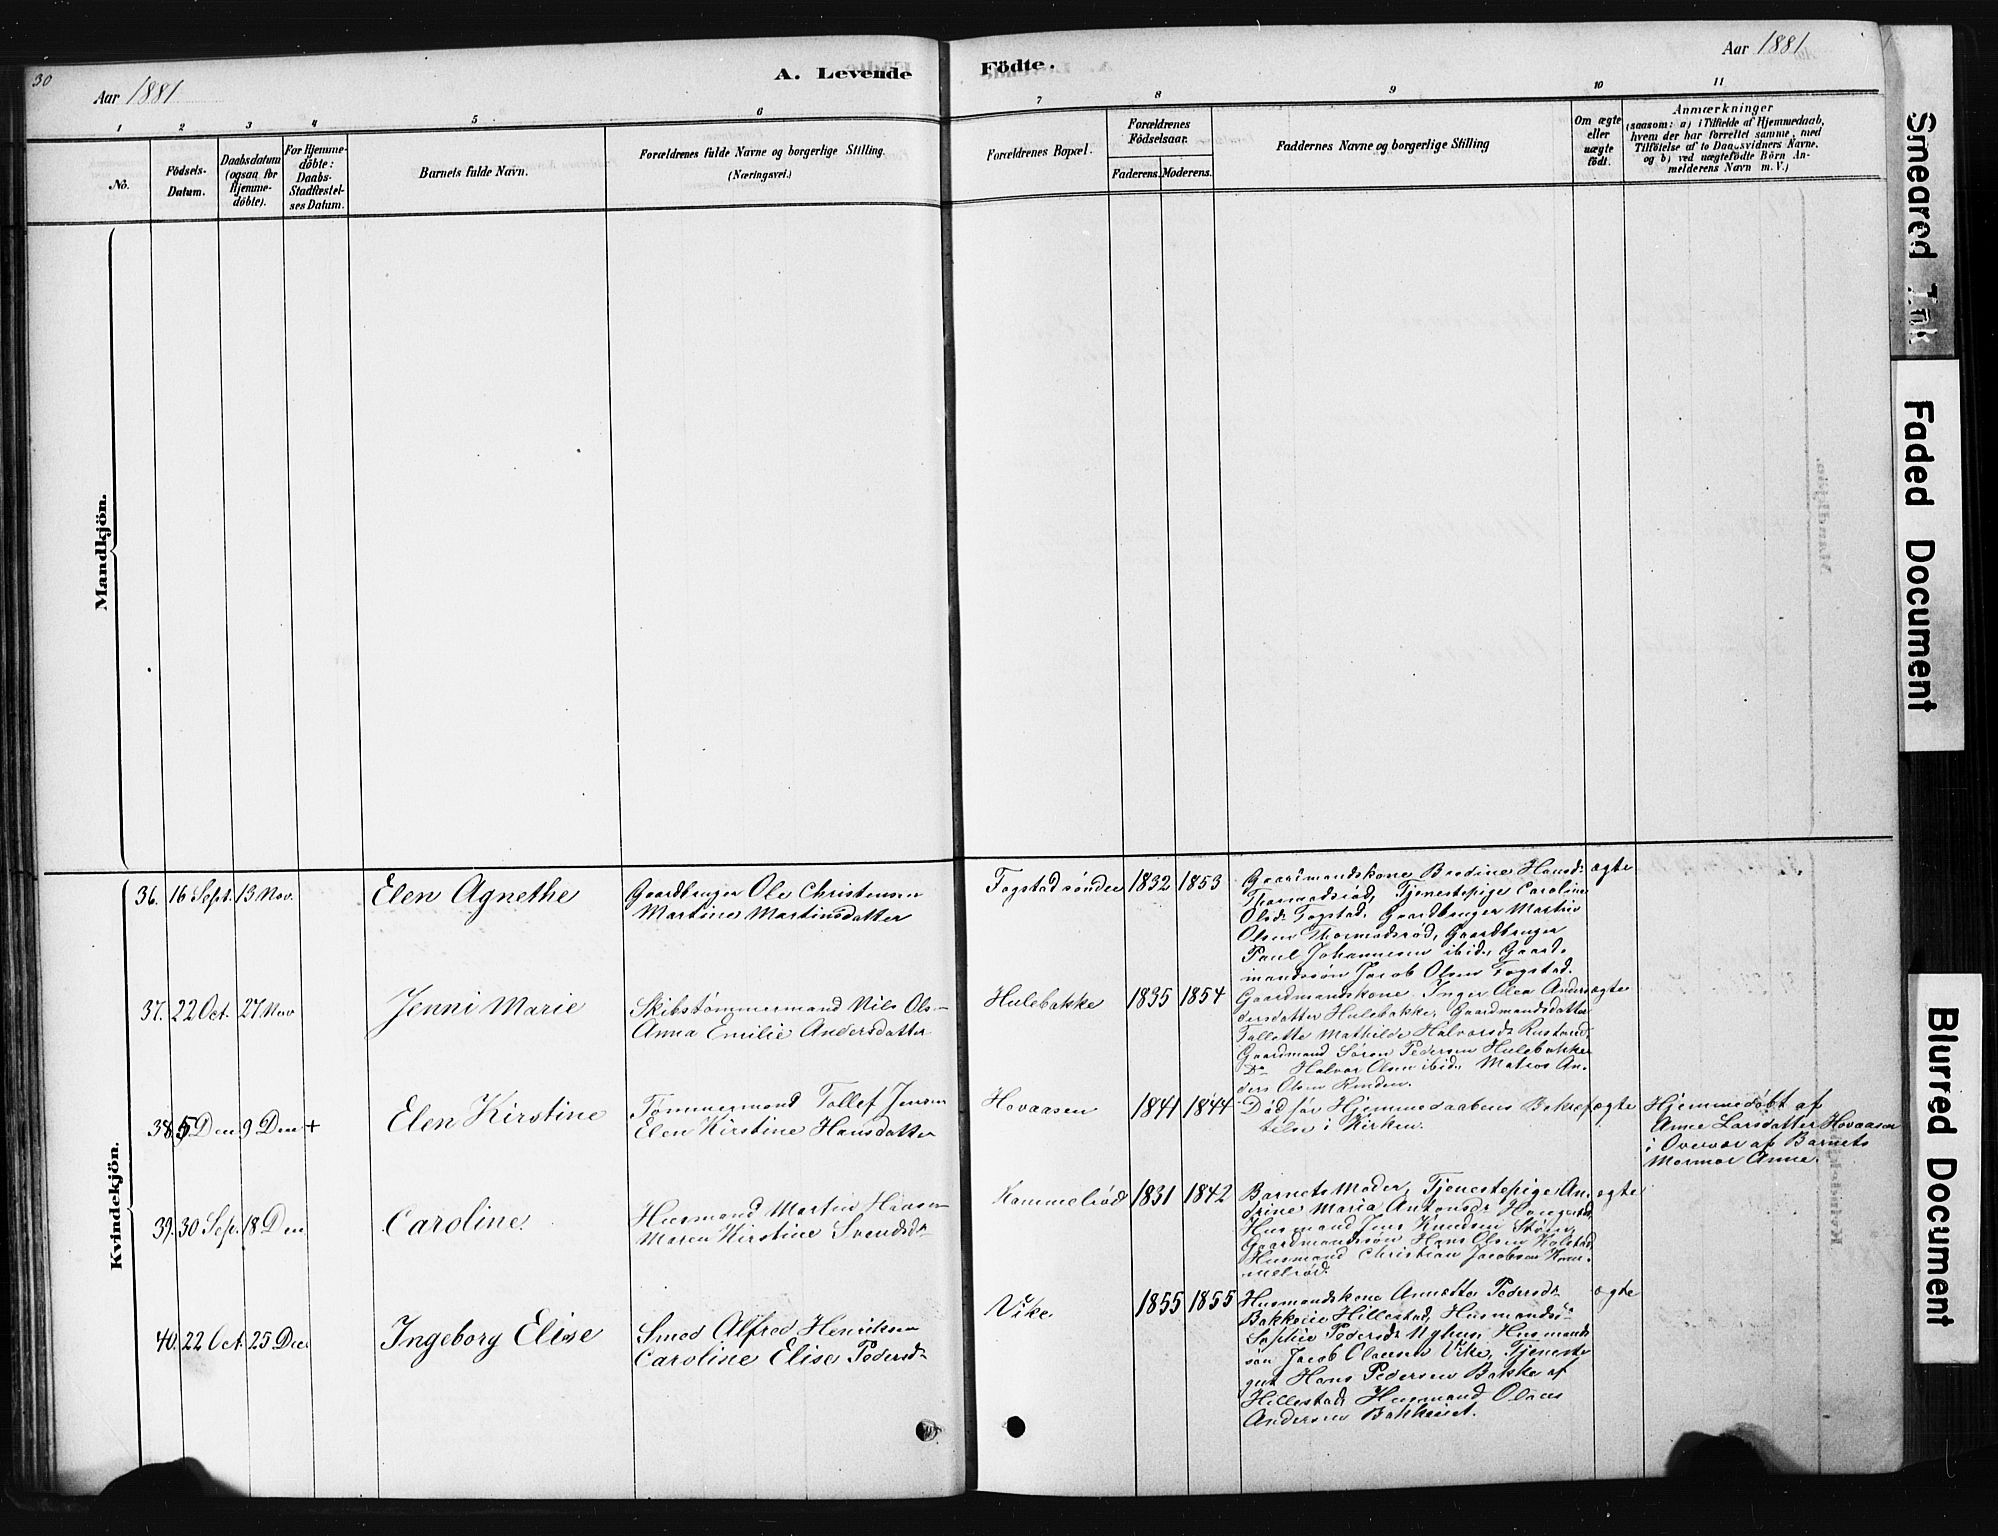 30
Aar 1881
A. Levende
Födte.
Aar 1881
1 2 3 4 5 6 7 8 9 10 11
No.
Födsels-
Datum.
Daabsdatum
(ogsaa for
Hjemme-
döbte).
For Hjemme-
döbte:
Daabs-
Stadfæstel-
ses Datum.
Barnets fulde Navn.
Forældrenes fulde Navne og borgerlige Stilling.
(Næringsvei.)
Forældrenes Bopæl.
Forældrenes
Födselsaar.
Faderens. Moderens.
Faddernes Navne og borgerlige Stilling
Om ægte
eller
uægte
födt.
Anmærkninger
(saasom: a) i Tilfælde af Hjemmedaab,
hvem der har forrettet samme, med
Tilföielse af to Daabsvidners Navne,
og b) ved uægtefödte Börn An-
melderens Navn m. V.)
Mandkjön.
Kvindekjön.
36. 16 Sept. 13 Nov. Elen Agnethe
Gaardbruger Ole Christensen
Martine Martinsdatter
Fogstad søndre 1832 1853
Gaardmandskone Bredine Hansd:
Thormodsrød, Tjenestepige Caroline
Olsd: Fogstad, Gaardbruger Martin
Olsen Thormodsrød, Gaardbruger
Paul Johannesen ibid, Gaard-
mandssøn Jacob Olsen Fogstad.
ægte
37. 22 Oct. 27 Nov Jenni Marie
Skibstømmermand Nils Ols-
Anna Emilie Andersdatter
Hulebakke 1835 1854
Gaardmandskone Inger Olea Anders
dersdatter Hulebakke, Gaardmandsdatter
Mathilde Halvorsd:
Gaardmand Søren Pedersen Hulebakke
Do Halvor Olsen ibid, Matros An-
ders Olsen
ægte
38. 5 Dec 9 Dec + Elen Kirstine
Tømmermand Tollef Jensen
Elen Kirstine Hansdatter
Hovaasen 1841 1844
Død før Hjemmedaabens Bekræf-
telse i Kirken.
ægte
Hjemmedøbt af
Anne Larsdatter Hovaasen
i Overvær af Barnets
Mormor Anne.
39. 30 Sep. 18 Dec Caroline.
Husmand Martin Hansen
Maren Kirstine Svendsdr
Kammelrød 1831 1842
Barnets Moder, Tjenestepige An-
drine Maria Antonsdr
Husmand Jens Knudsen
Gaardmandssøn Hans Olsen Kolstad,
Husmand Christian Jacobsen Kam-
melrød.
ægte
40. 22 Oct. 25 Dec Ingeborg Elise
Smed Alfred Henriksen
Caroline Elise Pedersdr
Vike. 1855 1855
Husmandskone Annette Pedersdr
Bakkeie Hillestad, Husmandsd:
Sophie Pedersdr Nyhus, Husmands
søn Jacob Olausen Vike, Tjeneste
gut Hans Pedersen Bakke af
Hillestad, Husmand Olaus
Andersen
ægte
Smeared Ink
Faded Document
Blurred Document